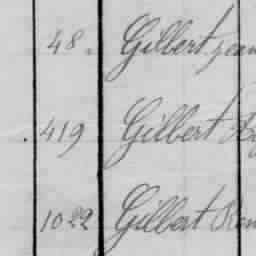 48. Gilbert Jean
419 Gilbert
1022 Gilbert